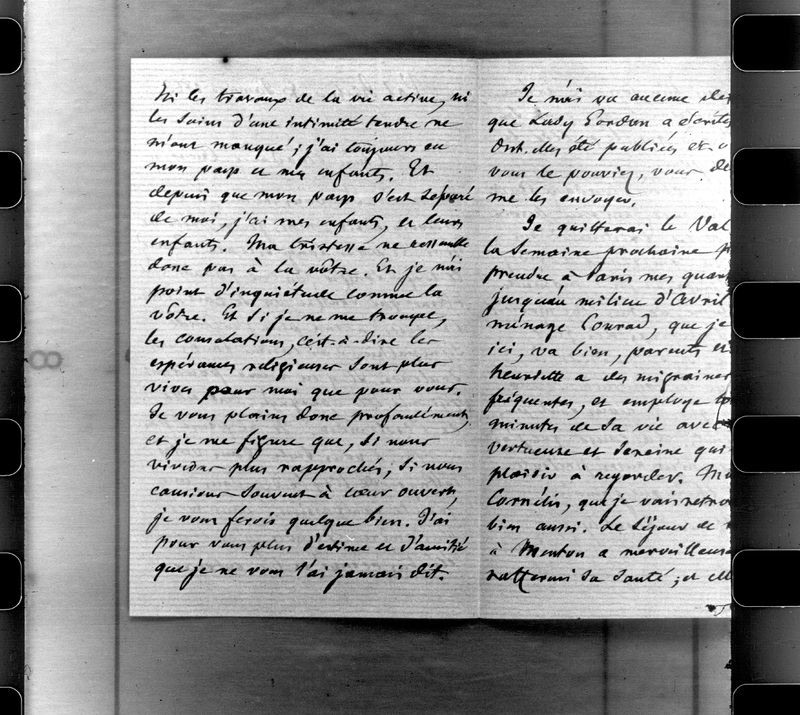 Ni les travaux de la vie active, ni
les soins d'une intimité tendre ne
m'ont manqué; j'ai toujours eu
mon pays et mes enfants. Et
depuis que mon pays s'est séparé
de moi, j'ai mes enfants, et leurs
enfants. Ma tristesse ne ressemble
donc pas à la vôtre. Et je n'ai
point d'inquiétude comme la
vôtre. Et si je ne me trompe,
les consolations, c'est-à-dire les
espérances religieuses sont plus
vives pour moi que pour vous.
Je vous plains donc profondément,
et je me figure que, si nous
vivions plus rapprochés, si nous
causions souvent à coeur ouvert,
je vous ferois quelque bien. J'ai
pour vous plus d'estime et d'amitié
que je ne vous l'ai jamais dit.
Je n'ai vu aucune des
que Lady Gordon a écrites
Ont-elles été publiées et
vous le pouviez, vous
me les envoyer.
Je quitterai le Val
la semaine prochaine
prendre à Paris mes
jusqu'au milieu d'Avril
ménage Conrad, que je
ici, va bien, parents et
henriette a des migraines
fréquentes, et employe
minutes de sa vie avec
vertueuse et sereine qui
plaisir à regarder.
Cornélis, que je vais
bien aussi. Le séjour de
à Menton a
raffermi sa santé; et